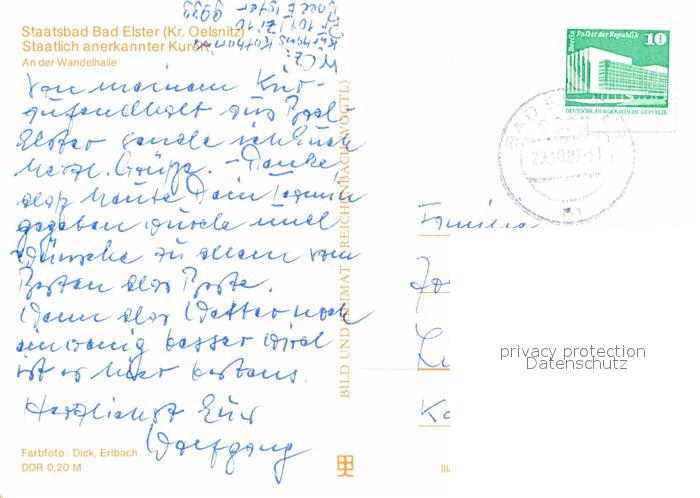 Staatsbad Bad Elster (Kr. Oelsnitz)
Staatlich anerkannter Kurort
An der Wandelhalle
Von meinem Kur-
aufenthalt aus Bad
Elster sende ich Euch
herzl. Grüße. – Danke,
daß heute Dein Termin
gegeben wurde und
wünsche zu allem vom
Besten das Beste.
Wenn das Wetter noch
ein wenig besser wird
ist es hier bestens.
Herzlichst Euer
Wolfgang
Farbfoto: Dick, Erlbach
DDR 0,20 M
BILD UND HEIMAT REICHENBACH (VOGTL)
Berlin Palast der Republik
10
DEUTSCHE DEMOKRATISCHE REPUBLIK
BAD
Familie
privacy protection
Datenschutz